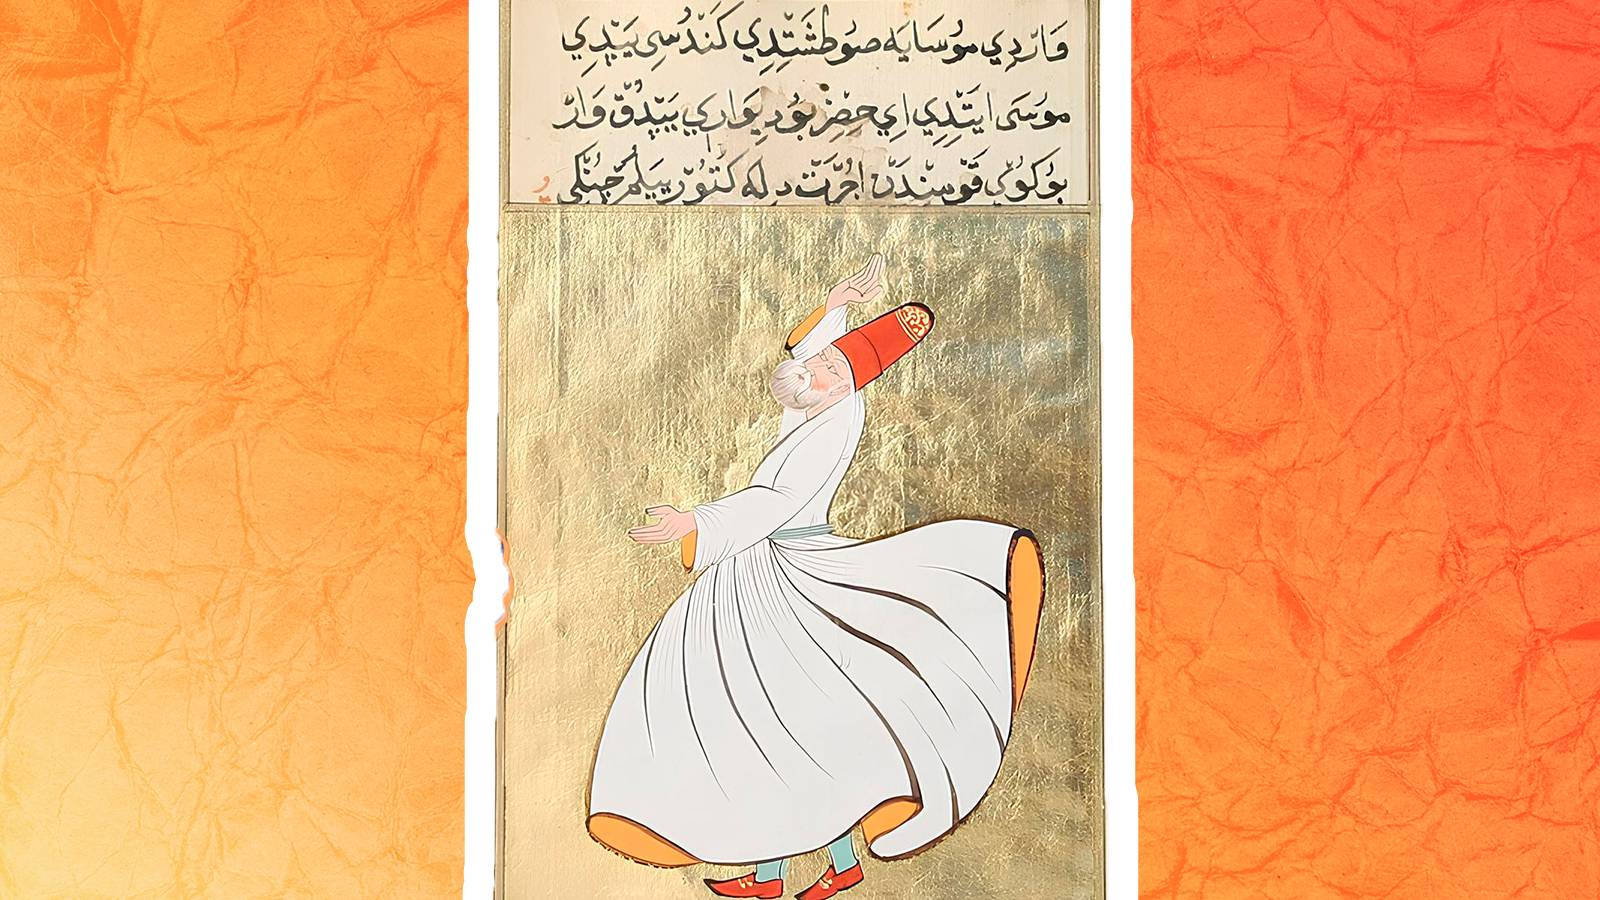 وَارْدِي مُوسَايَه صُوطَشْتَدِي كَنْدُسِي يَيْدِي
مُوسَى ايَتْدِي اِي خِضِرْ بُو دِيوَارِي يَيْدُقْ وَارْ
بُو كُويْ قَوْمِنْدَنْ اُجْرَتْ دِلَه كَتُورْ يِيَلُمْ